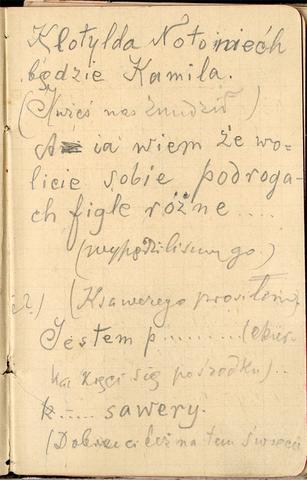 Klotylda No to niech
będzie Kamila.
(Któś nas znudził)
A ia wiem że wo=
licie sobie podroga-
ch figle różne ....
(wypędziliśmy go.)
(Ksawerego prosiłem)
Jestem p..........
kręci się pośrodku)..
k..... sawery.
(Dobrze ci też na tem świecie